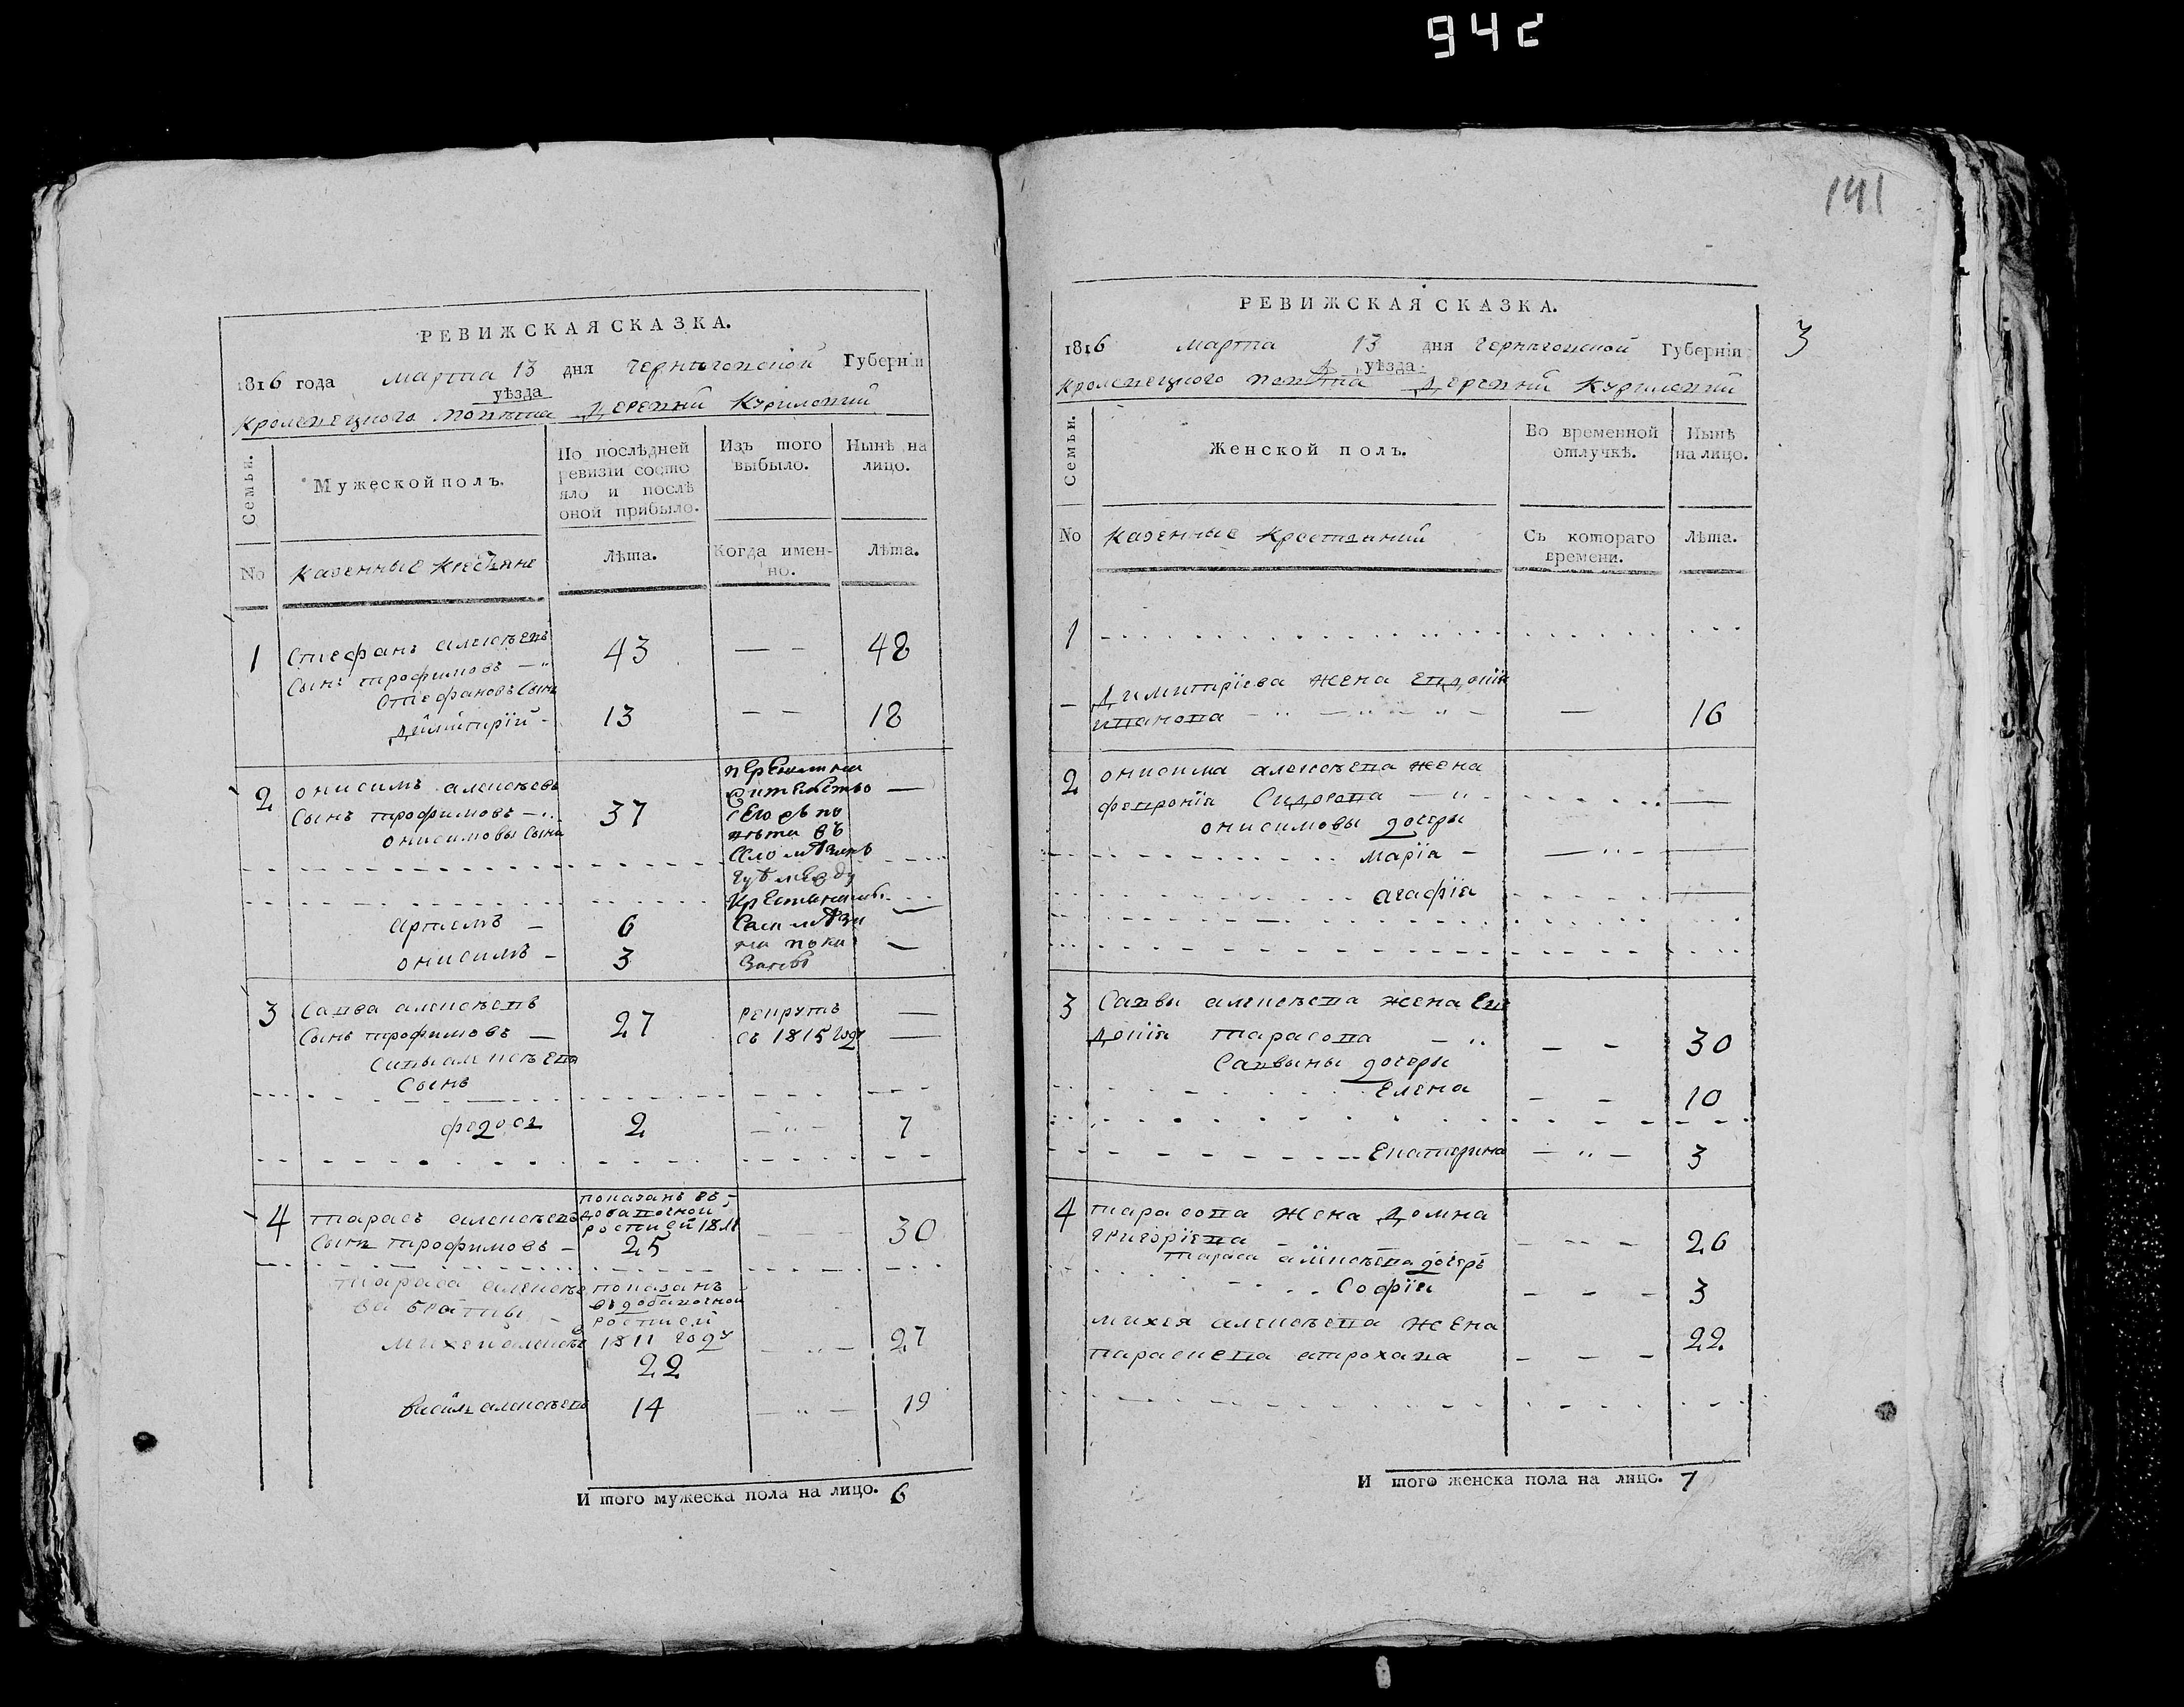 942
141
РЕВИЖСКАЯ СКАЗКА.
1816 года марта 13 дня черниговской Губерніи
уѣзда
кролевецкого повѣта деревни Куриловки
Семьи.
Мужеской полъ.
По послѣдней ревизіи состояло и послѣ оной прибыло.
Изъ того выбыло.
Нынѣ на лицо.
No
казенные крестьяне
Лѣта.
Когда именно.
Лѣта.
1 Стефанъ алексѣевъ 43 — - 48
Сынъ трофимовъ —
Стефановъ Сынъ
димитрій - 13 — — 18
2 онисимъ алексѣевъ
Сынъ трофимовъ 37 —
онисимовы Сыны
артемъ — 6 —
онисимъ - 3 —
3 Савва алексѣевъ рекрутъ —
Сынъ трофимовъ — 27 въ 1815 году —
Саввы алексѣева
Сынъ
федосъ 2 7
4 тарасъ алексѣевъ показанъ въ
добавочной
росписи 1811 30
Сынъ трофимовъ - 25
тараса алексѣева показанъ
братья въ добавочной
росписи
михей алексѣевъ 1811 году 27
22
василь алексѣевъ 14 19
И того мужеска пола на лицо. 6
РЕВИЖСКАЯ СКАЗКА.
3
1816 марта 13 дня черниговской Губерніи
уѣзда
кролевецкого повѣта деревни Куриловки
Семьи.
Женской полъ.
Во временной отлучкѣ.
Нынѣ на лицо.
No
казенные крестьянки
Съ котораго времени.
Лѣта.
1
димитріева жена Евдокія
иванова — 16
2 онисима алексѣева жена
февронія Сидорова —
онисимовы дочери
марія - —
агафія —
3 Саввы алексѣева жена Ев
докія тарасова 30
Саввины дочери
Елена 10
Екатерина 3
4 тарасова жена домна
григоріева 26
тараса алексѣева дочерь
Софія 3
михея алексѣева жена 22
параскева
И того женска пола на лицо. 7